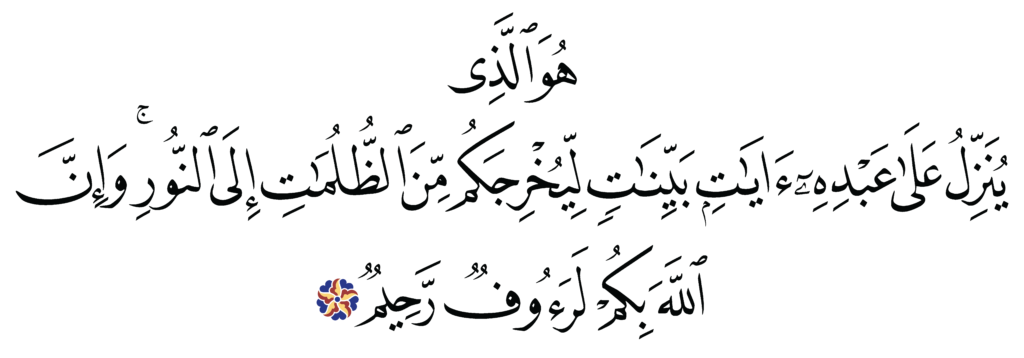 هُوَ ٱلَّذِى
يُنَزِّلُ عَلَىٰ عَبْدِهِۦٓ ءَايَـٰتٍۭ بَيِّنَـٰتٍ لِّيُخْرِجَكُم مِّنَ ٱلظُّلُمَـٰتِ إِلَى ٱلنُّورِ ۚ وَإِنَّ
ٱللَّهَ بِكُمْ لَرَءُوفٌ رَّحِيمٌ